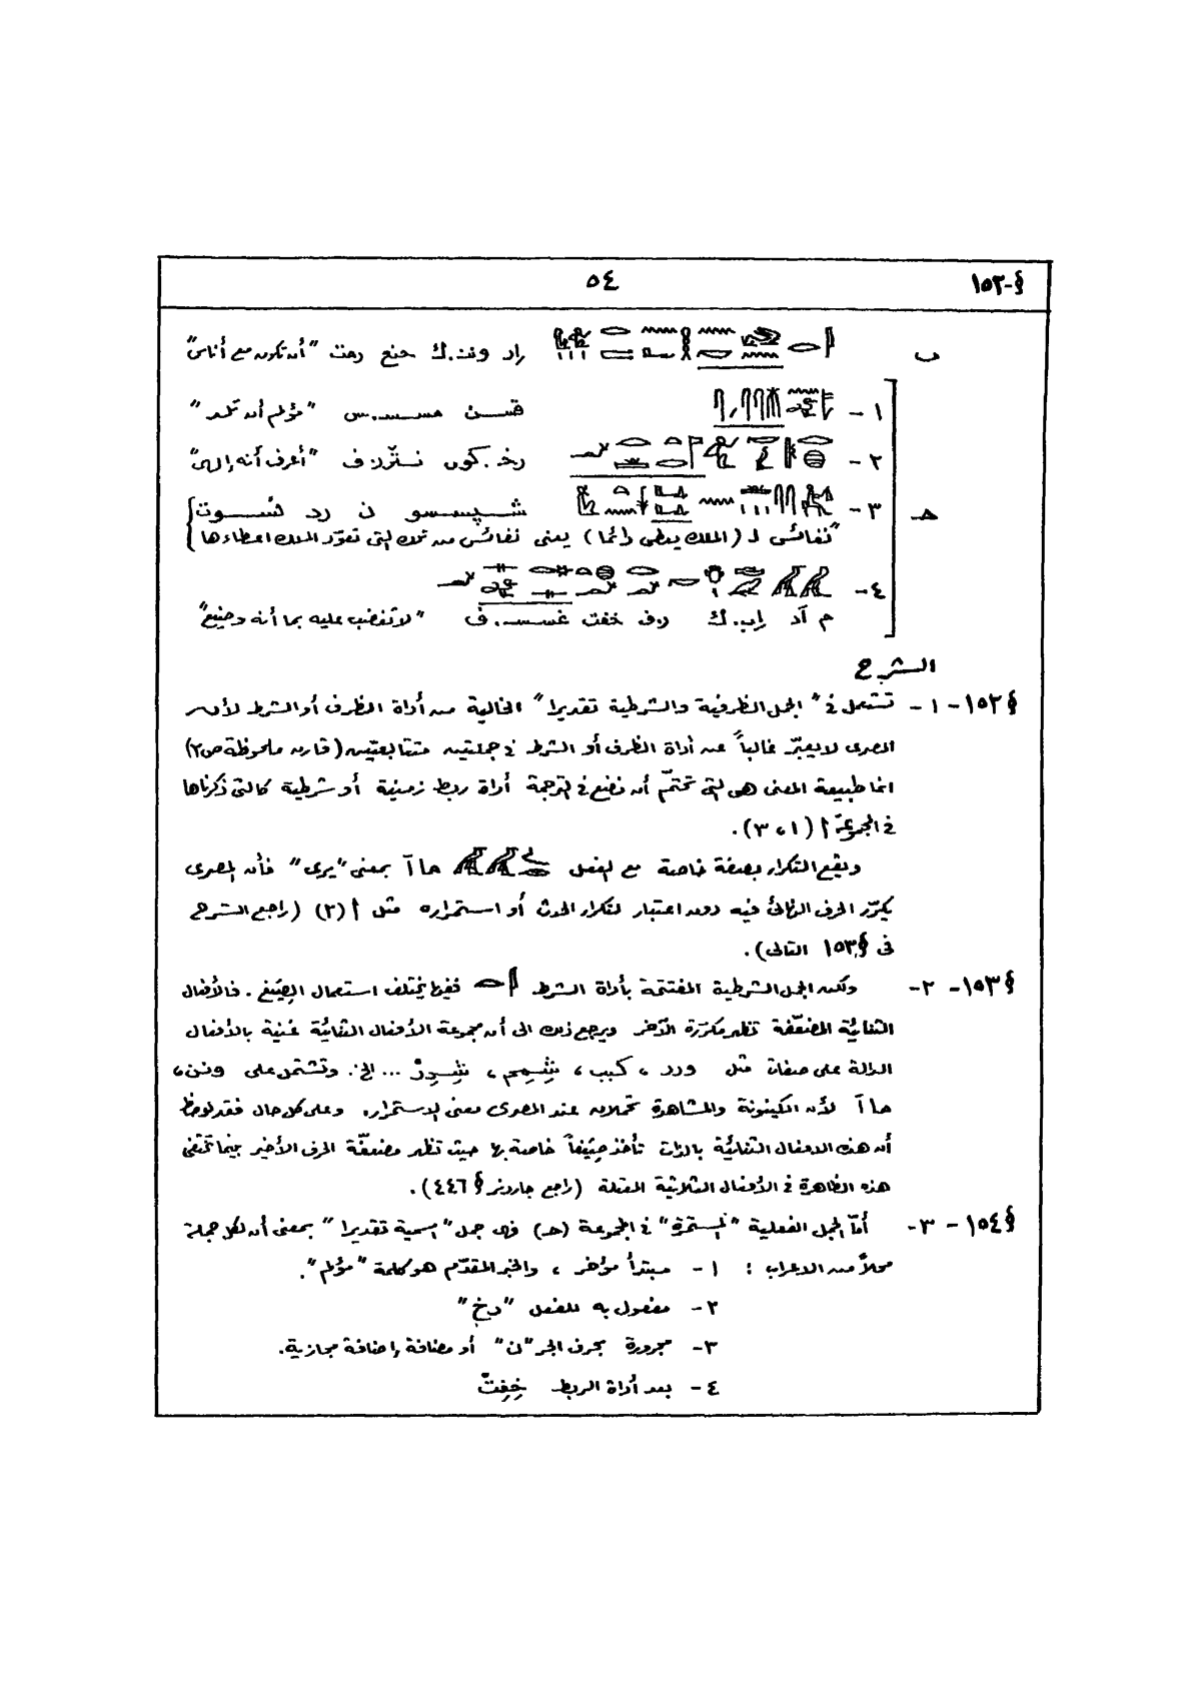 §-١٥٢ ٥٤
ب إر ونن.ك حنع رمث "أن تكون مع أناس"
١- قسن مسسس.س "مؤلم أن تلد"
٢- رخ.كوى نترر.ف "أعرف أنه إلهى"
حـ ٣- شپسسو ن رد نسوت
"نفائس لـ (الملك يعطى دائما) يعنى نفائس من تلك التى تعوّد الملك اعطاءها
٤-
م آد إب.ك ر.ف خفت خسسس.ف "لا تغضب عليه بما أنه وضيع"
الشرح
§١٥٢- ١- تستعمل فى "الجمل الظرفية والشرطية تقديرا" الخالية من أداة الظرف أو الشرط لأن
المصرى لا يعبّر غالباً عن أداة الظرف أو الشرط فى جملتين متتابعتين (قارن ملحوظة ص٢)
انما طبيعة المعنى هى التى تحتمّ أن نضع فى الترجمة أداة ربط زمنية أو شرطية كالتى ذكرناها
فى المجموعة أ (١،٣).
ويقع التكرار بصفة خاصة مع الفعل ماآ بمعنى "يرى" فأن المصرى
يكرّر الحرف الثانى فيه دون اعتبار لتكرار الحدث أو استمراره مثل أ (٢) (راجع الشرح
فى §١٥٣ التالى).
§١٥٣- ٢- ولكن الجمل الشرطية المفتتحة بأداة الشرط ففيها يختلف استعمال الصِيَغ. فالأفعال
الثنائية المضعّفة تظهر مكرّرة الآخر ويرجع ذلك الى أن مجموعة الأفعال الثنائية غنية بالأفعال
الدالة على صفات مثل ورر، كبب، شْمِم، نْدِدْ ... الخ. وتشتمل على ونن،
ماآ لأن الكينونة والمشاهدة تحملان عند المصرى معنى الاستمرار. وعلى كل حال فقد لوحظ
أن هذه الافعال الثنائية بالذات تأخذ صِيَغاً خاصة بها حيث تظهر مضعّفة الحرف الأخير بينما تختفى
هذه الظاهرة فى الأفعال الثلاثية المعتلة (راجع جاردنر § ٤٤٦).
§١٥٤ - ٣- أمّا الجمل الفعلية "المستمرة" فى المجموعة (حـ) فهى جمل "اسمية تقديرا" بمعنى أن لكل جملة
محلاً من الاعراب : ١- مبتدأ مؤخر ، والخبر المقدّم هو كلمة "مؤلم".
٢- مفعول به للفعل "رخ"
٣- مجرورة بحرف الجر "ن" أو مضافة إضافة مجازية.
٤- بعد أداة الربط خِفِتْ